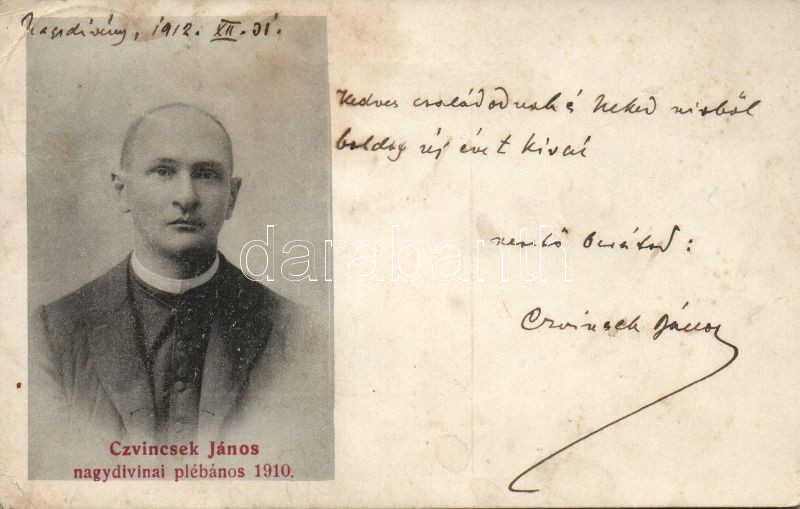 Nagydivény, 1912. XII. 31.
Kedves családodnak és Neked szivből
boldog új évet kíván
szerető barátod:
Czvincsek János
darabanth
Czvincsek János
nagydivinai plébános 1910.